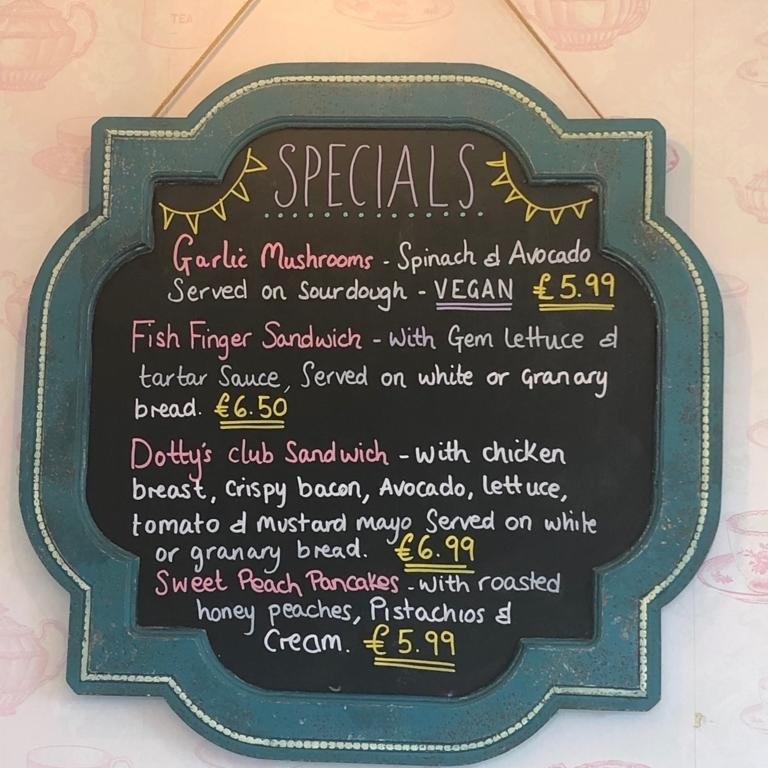 SPECIALS
Garlic Mushrooms - Spinach & Avocado
Served on Sourdough - VEGAN £5.99
Fish Finger Sandwich - With Gem Lettuce &
tartar Sauce, Served on white or Granary
bread. £6.50
Dotty's club Sandwich - with chicken
breast, Crispy bacon, Avocado, lettuce,
tomato & Mustard mayo Served on white
or granary bread. £6.99
Sweet Peach Pancakes - with roasted
honey peaches, Pistachios &
Cream. £5.99
TEA